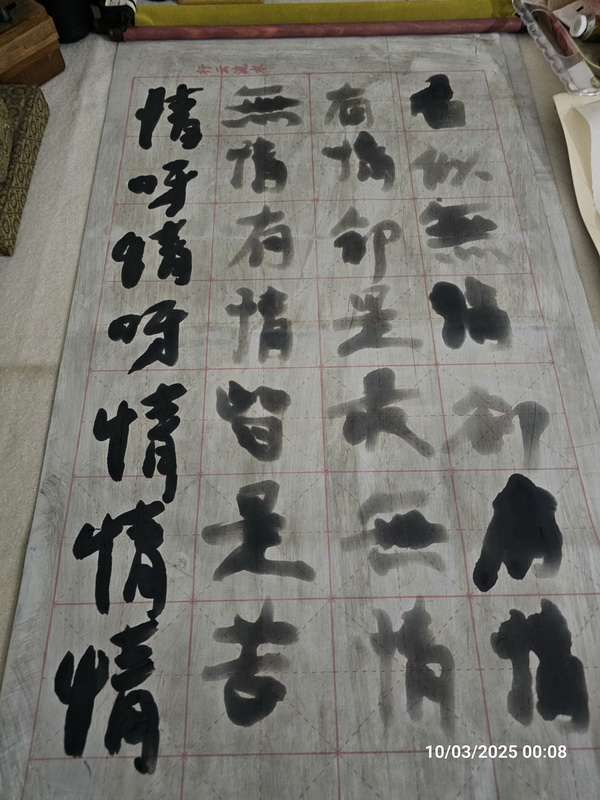 看似無情卻有情
有情卻是最無情
無情有情皆是苦
情呀情呀情情情
行云流水
10/03/2025 00:08